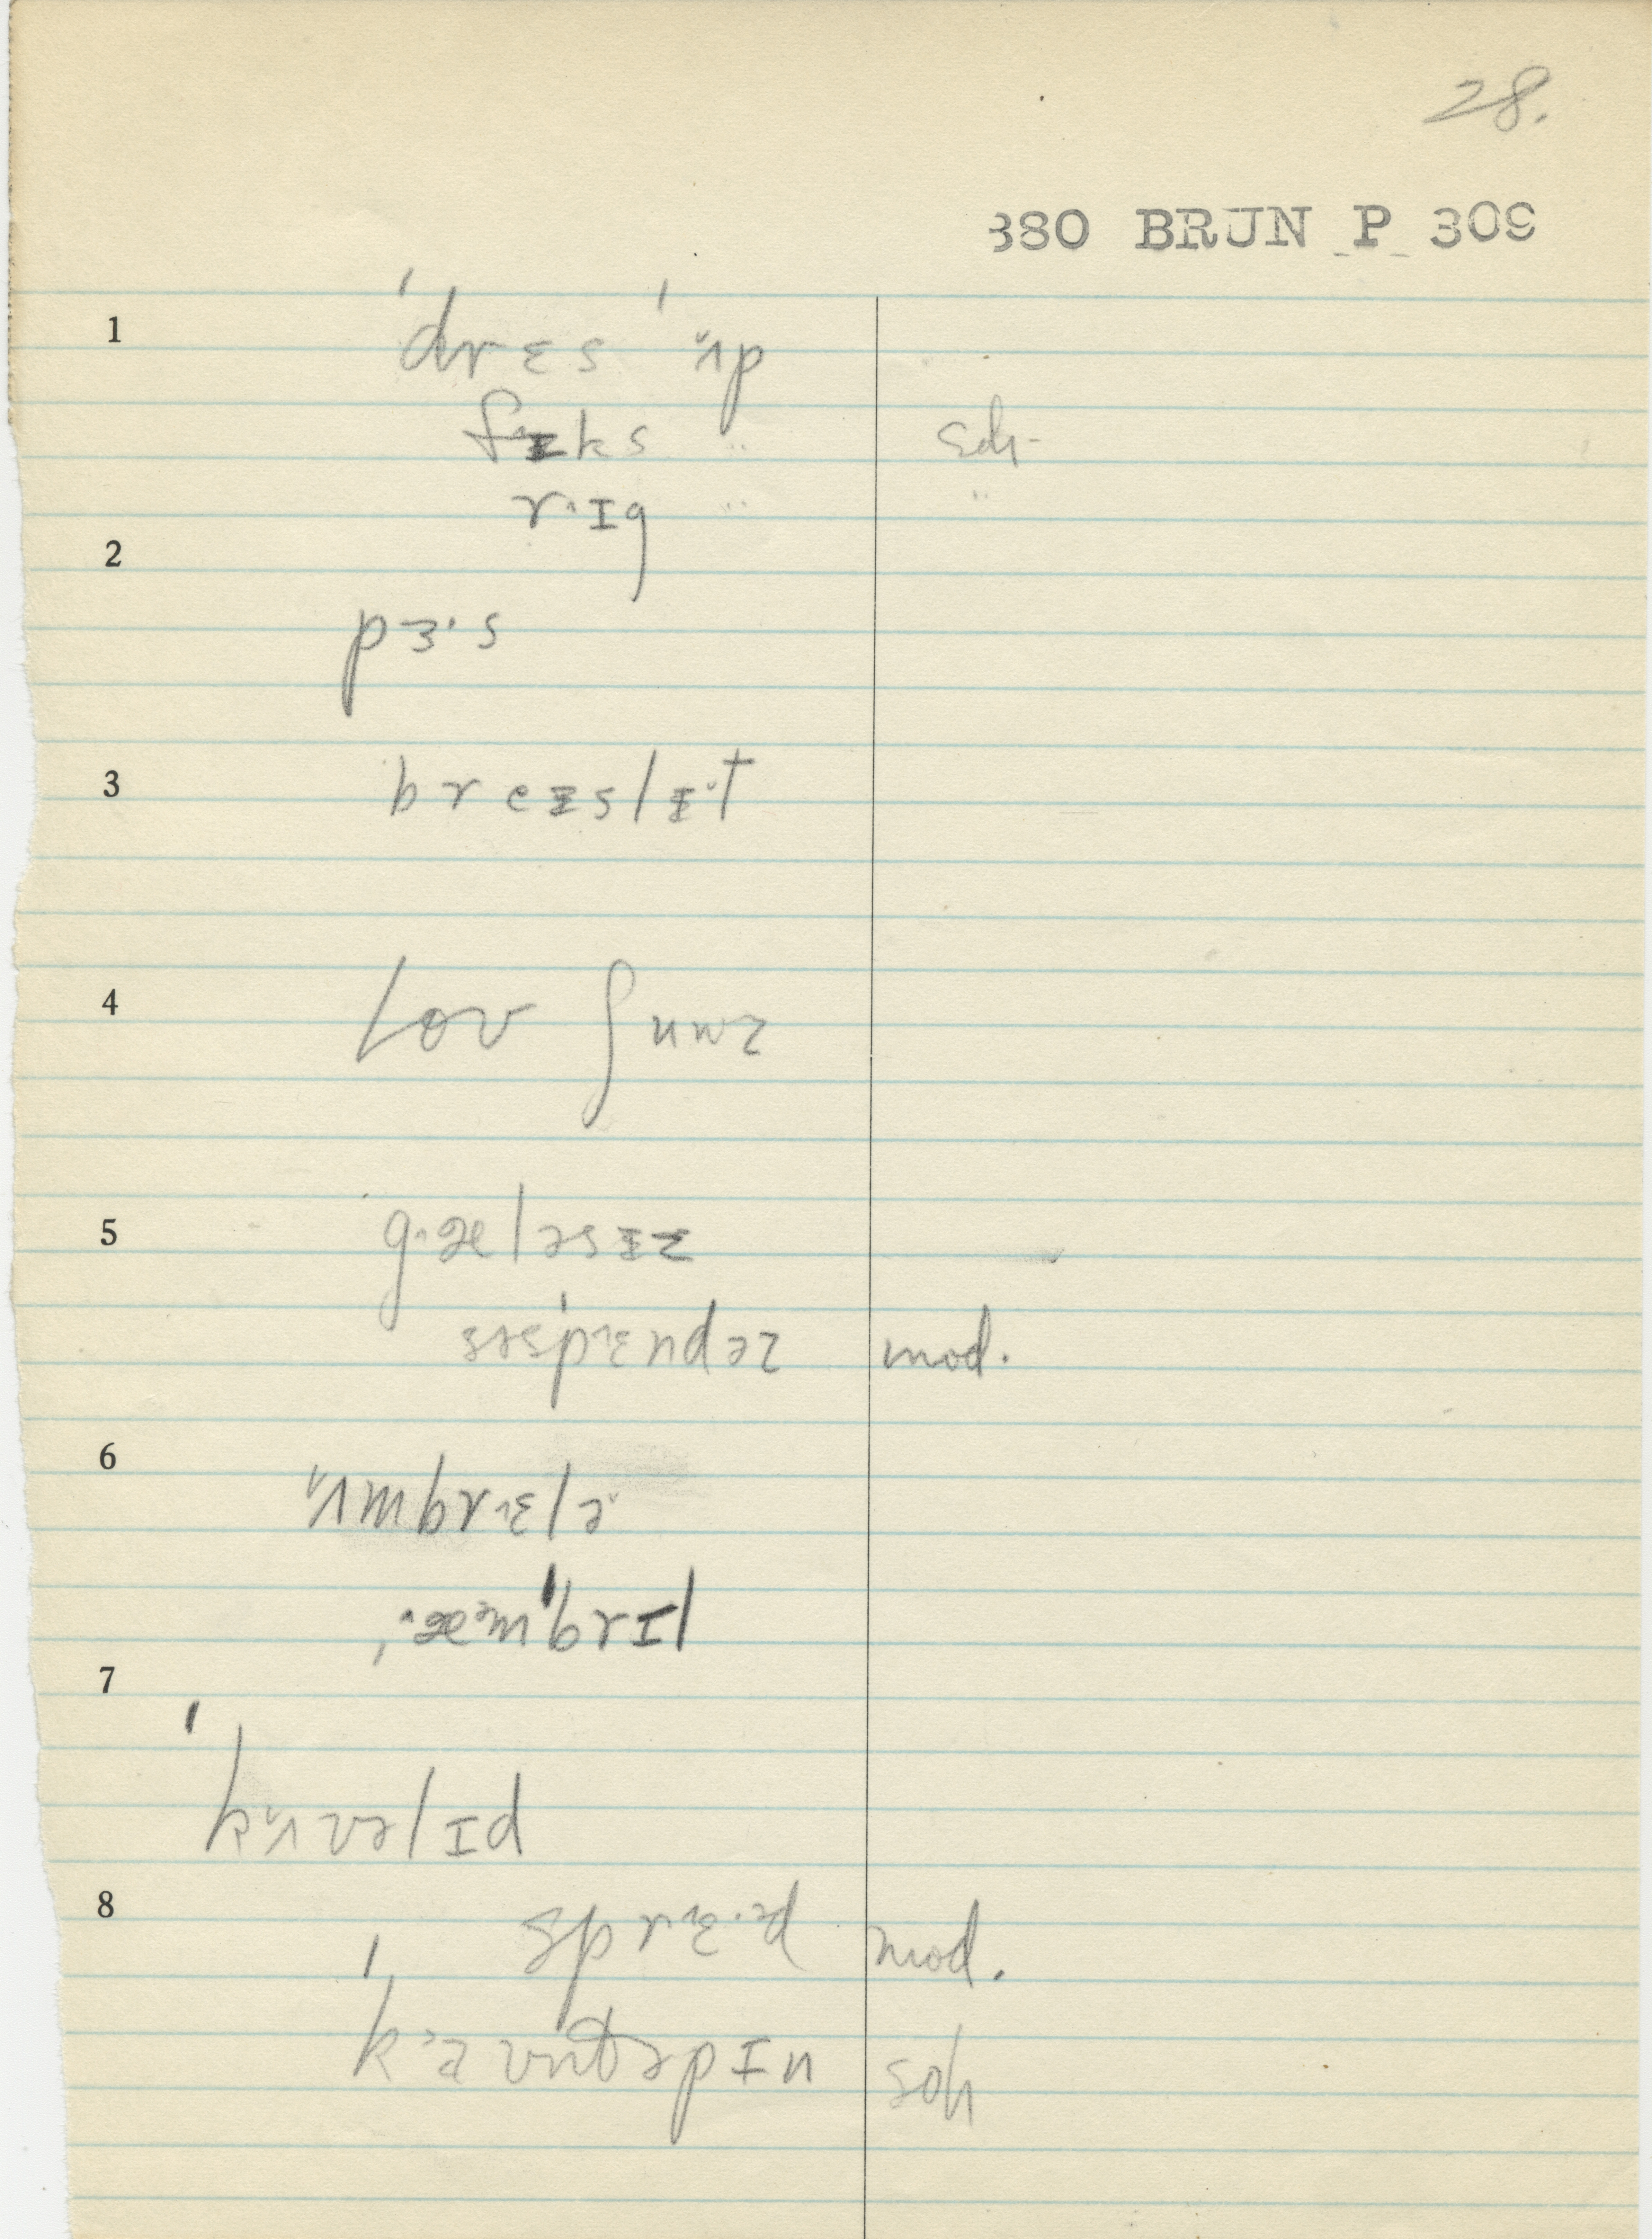 28.
380 BRUN P 309
1 ˈdrɛs ˈʌ̌p
fɪks " sdh-
rˑɪg " "
2
pɜˑs
3 breɪslɪˇt
4
5 gˑæləsɪz
səspˈɛndəz mod.
6 ʌ̌mbrˑɛlə
ˌæmˈbrɪl
7
ˈkʌ̌vəlɪd
8 sprˑɛˑəd mod.
ˈkaʊntəpɪn soh